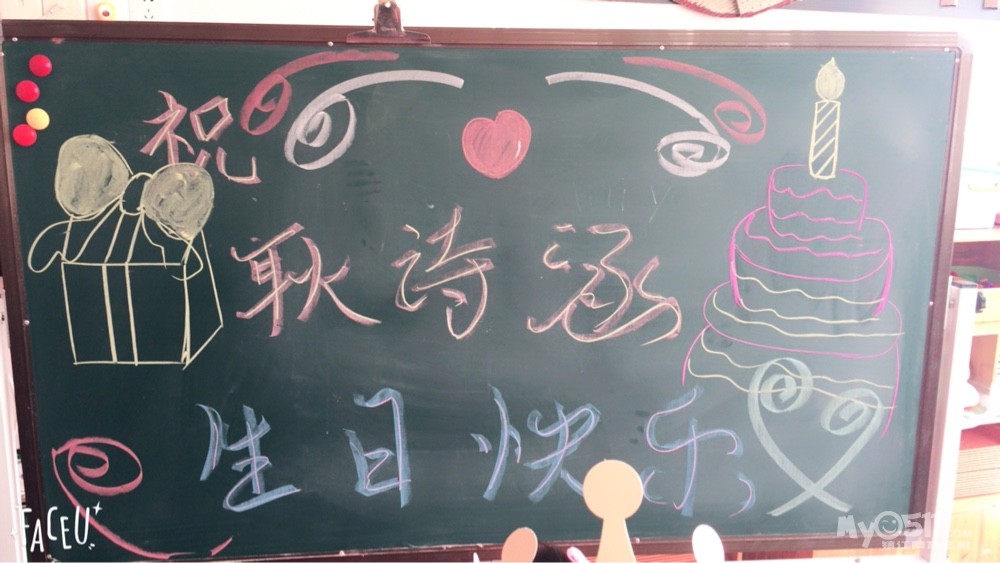 祝
耿诗涵
生日快乐
FACEU